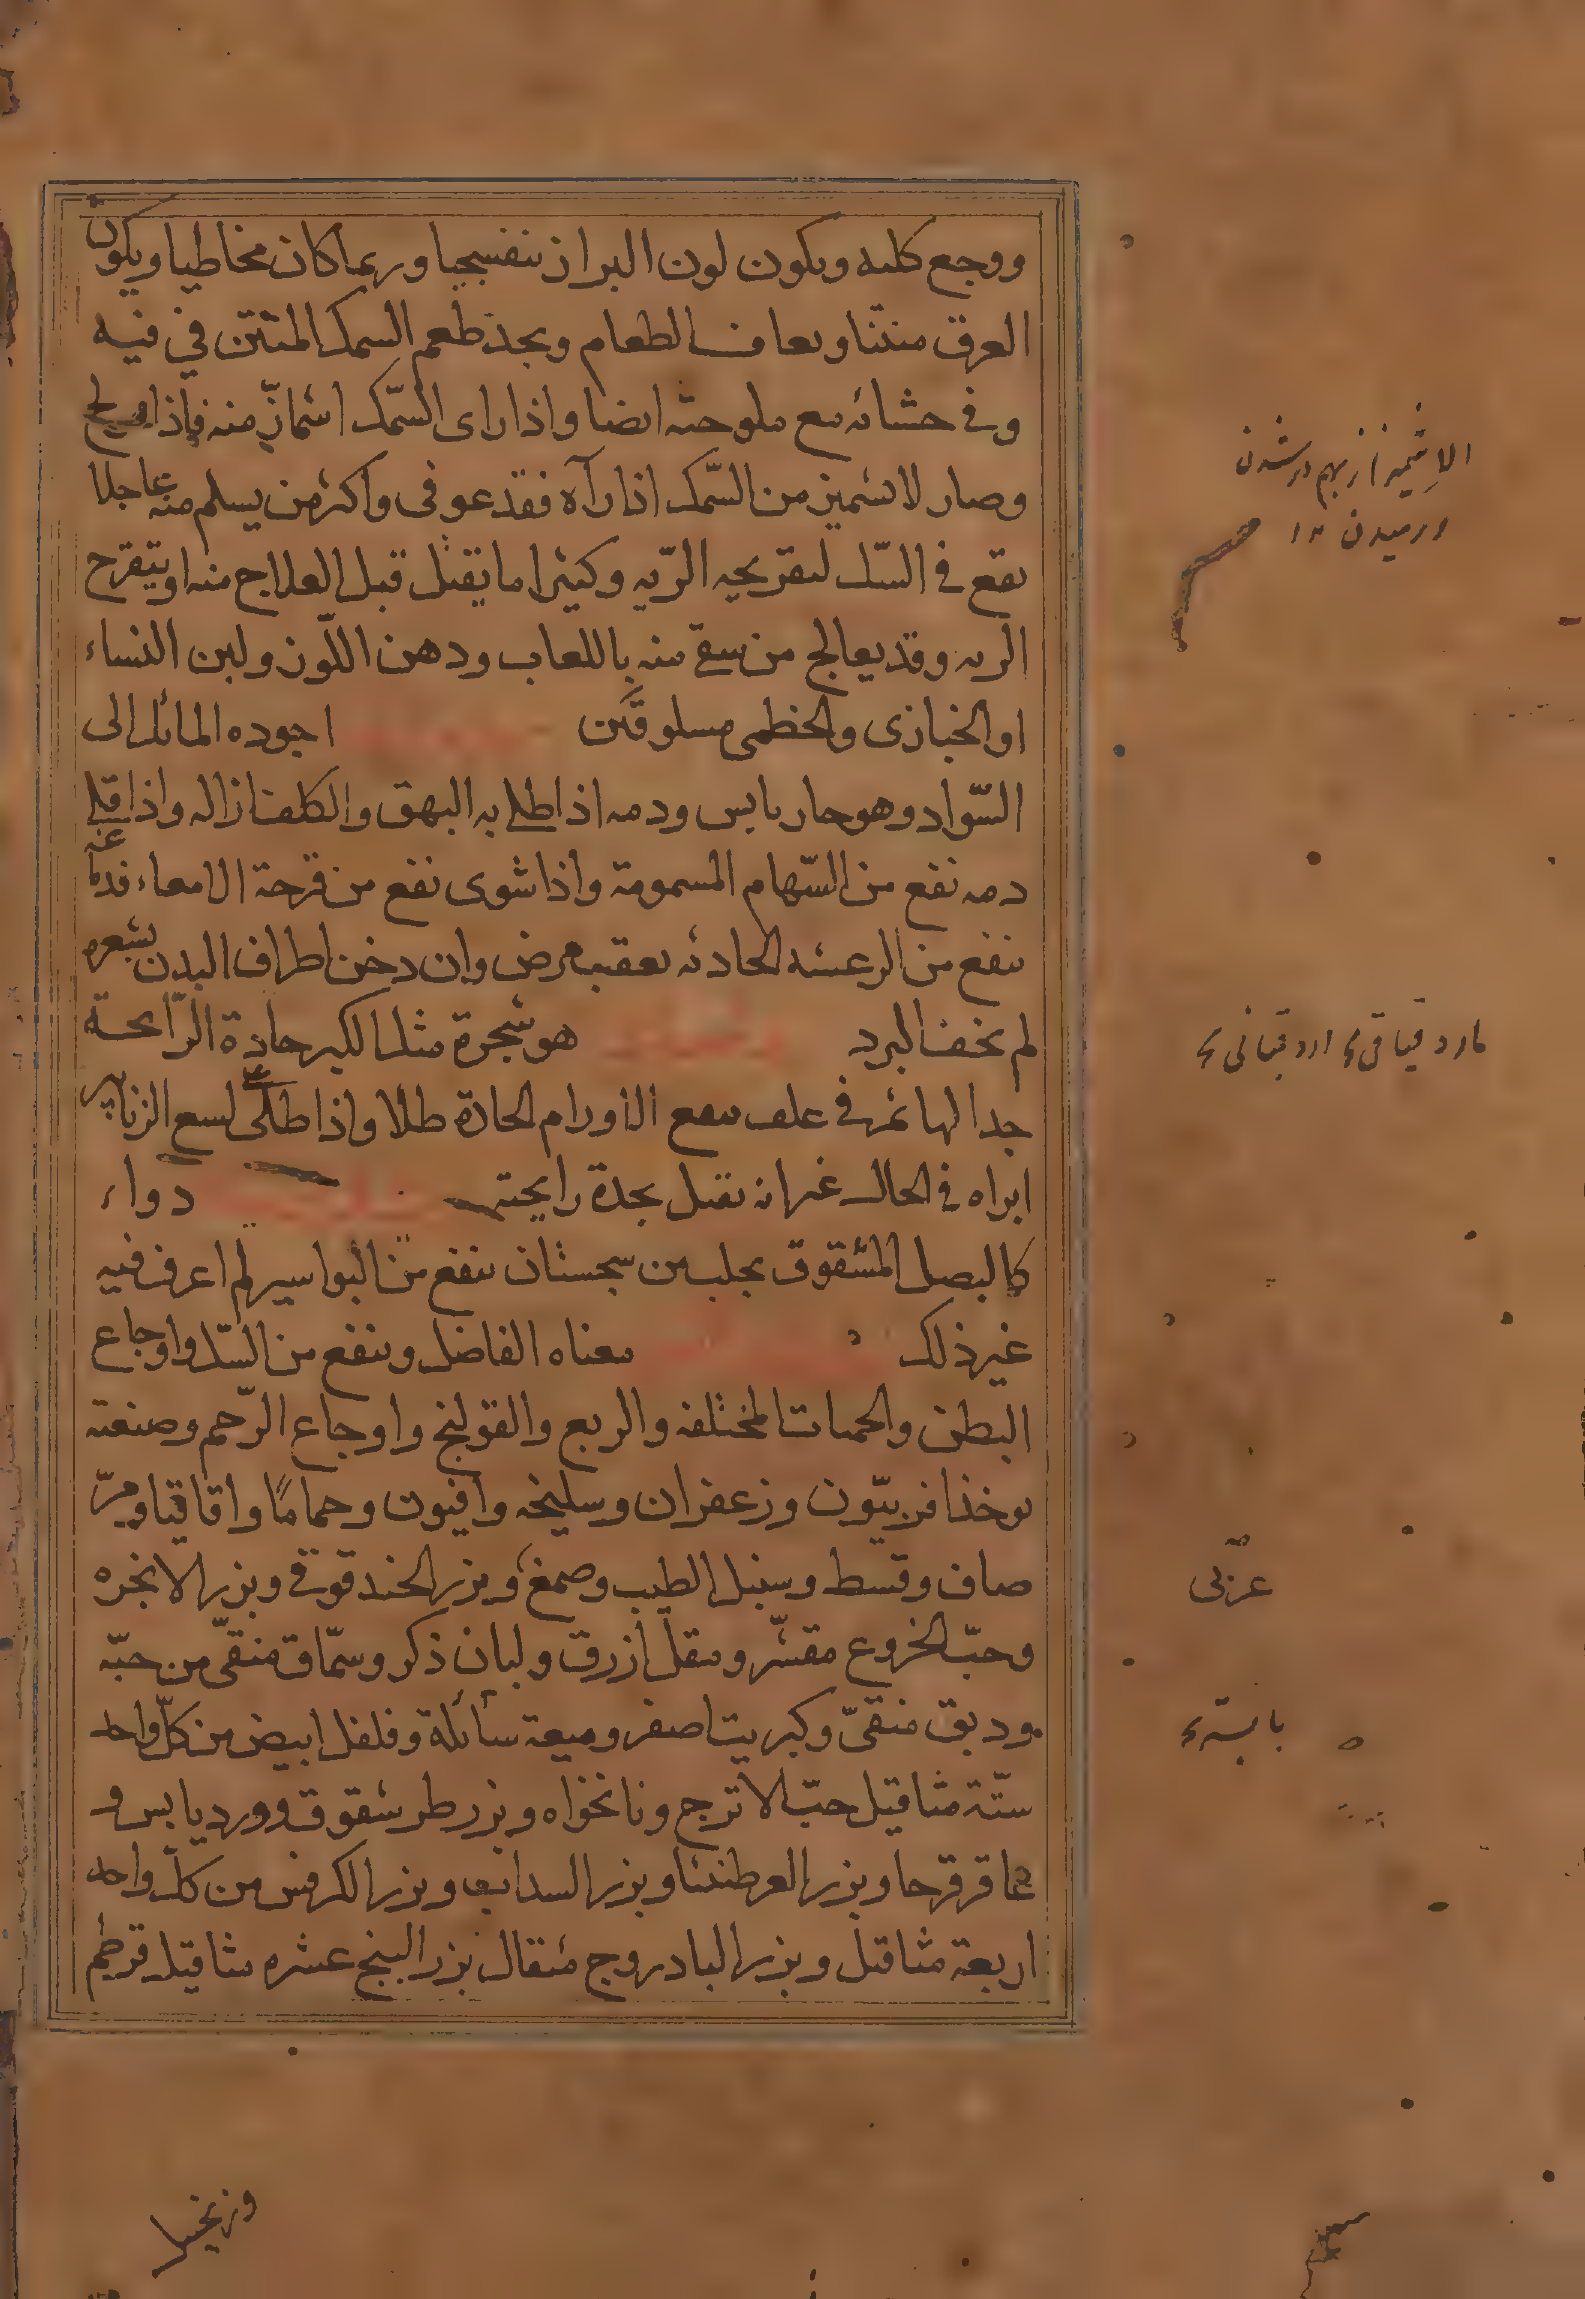 ووجع كليه ويكون لون البراز بنفسجيا وربما كان مخاطيا ويكون
العرق منتنا ويعاف الطعام ويجد طعم السمك المنتن في فيه
وفي حشائه مع ملوحته ايضا واذا راى السّمك اشمأزّ منه فاذا
وصار لا يشميز من السّمك اذا رآه فقد عوفى واكثر من يسلم منه عاجلا
يقع في السّل لتقريحه الرّيه وكثيرا ما يقتل قبل العلاج منه او يتقرح
الريه وقد يعالج من سقى منه باللعاب ودهن اللّوز ولبن النساء
او الخبازى والخطمى مسلوقين اجوده المائل الى
السّواد وهو حار يابس ودمه اذا طلى به البهق والكلف ازاله واذا قلى
دمه نفع من السّهام المسمومة واذا شوى نفع من قرحة الامعاء
ينفع من الرعشه الحادثه بعقب مرض وان دخن اطراف البدن بشعره
لم يخف البرد هو شجرة مثل الكبر حادة الرّائحة
جدا لها ثمر في غلف ينفع الاورام الحادة طلا واذا طلى لسع الزنابير
ابراه في الحال غير انه يقتل بحدة رايحته دواء
كالبصل المشقوق يجلب من سجستان ينفع من البواسير لم اعرف فيه
غير ذلك معناه الفاضل وينفع من السّل واوجاع
البطن والحميات المختلفه والربع والقولنج واوجاع الرّحم وصنعته
يوخذ افربيّون وزعفران وسليخه وافيون وحماما واقاقيا ومرّ
صاف وقسط وسنبل الطيب وصمغ وبزر الحندقوقى وبزر الانجره
وحبّ الخروع مقشّر ومقل ازرق ولبان ذكر وسمّاق منقّى من حبّه
ودبق منقىّ وكبريت اصفر وميعة سائلة وفلفل ابيض من كلّ واحد
ستّة مثاقيل حبّ الاترج ونانخواه وبزر طرشقوق وورد يابس و
عاقرقرحا وبزر العرطنيثا وبزر السداب وبزر الكرفس من كلّ واحد
اربعة مثاقيل وبزر البادروج مثقال بزر البنج عشره مثاقيل قرطم
الاشميزاز بهم در شدن
ورميدن ١٢
عربى
وزنجبيل